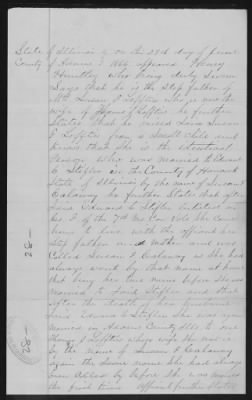 State of Illinois } on the 28th day of
County of Adams } 1869 appeared Henry
Huntley who being duly sworn
Says that he is the step father of
Mrs Susan J Loftis who is now the
wife of J Loftis he further
States that he has known Susan
J Loftis from a small child and
knows that she is the identical
Person who was married to Edward
C Steffin in the County of Hancock
State of Illinois by the name of Susan J
Calaway he further States that after
said Edward C Steffin enlisted in
Co. F of the 7th Mo Cav Vols she came
home to live with the affiant her
step father and mother and was
Called Susan J Calaway as she had
always went by that name at home
that being her true name before she was
married to said Steffin and that
after the death of her husband
said Edward C Steffin she was again
married in Adams County Ills to one
J Loftis
by the name of Susan J Calaway
again the same name she had always
been called by before she was married
the first time affiant further states
28-
28-